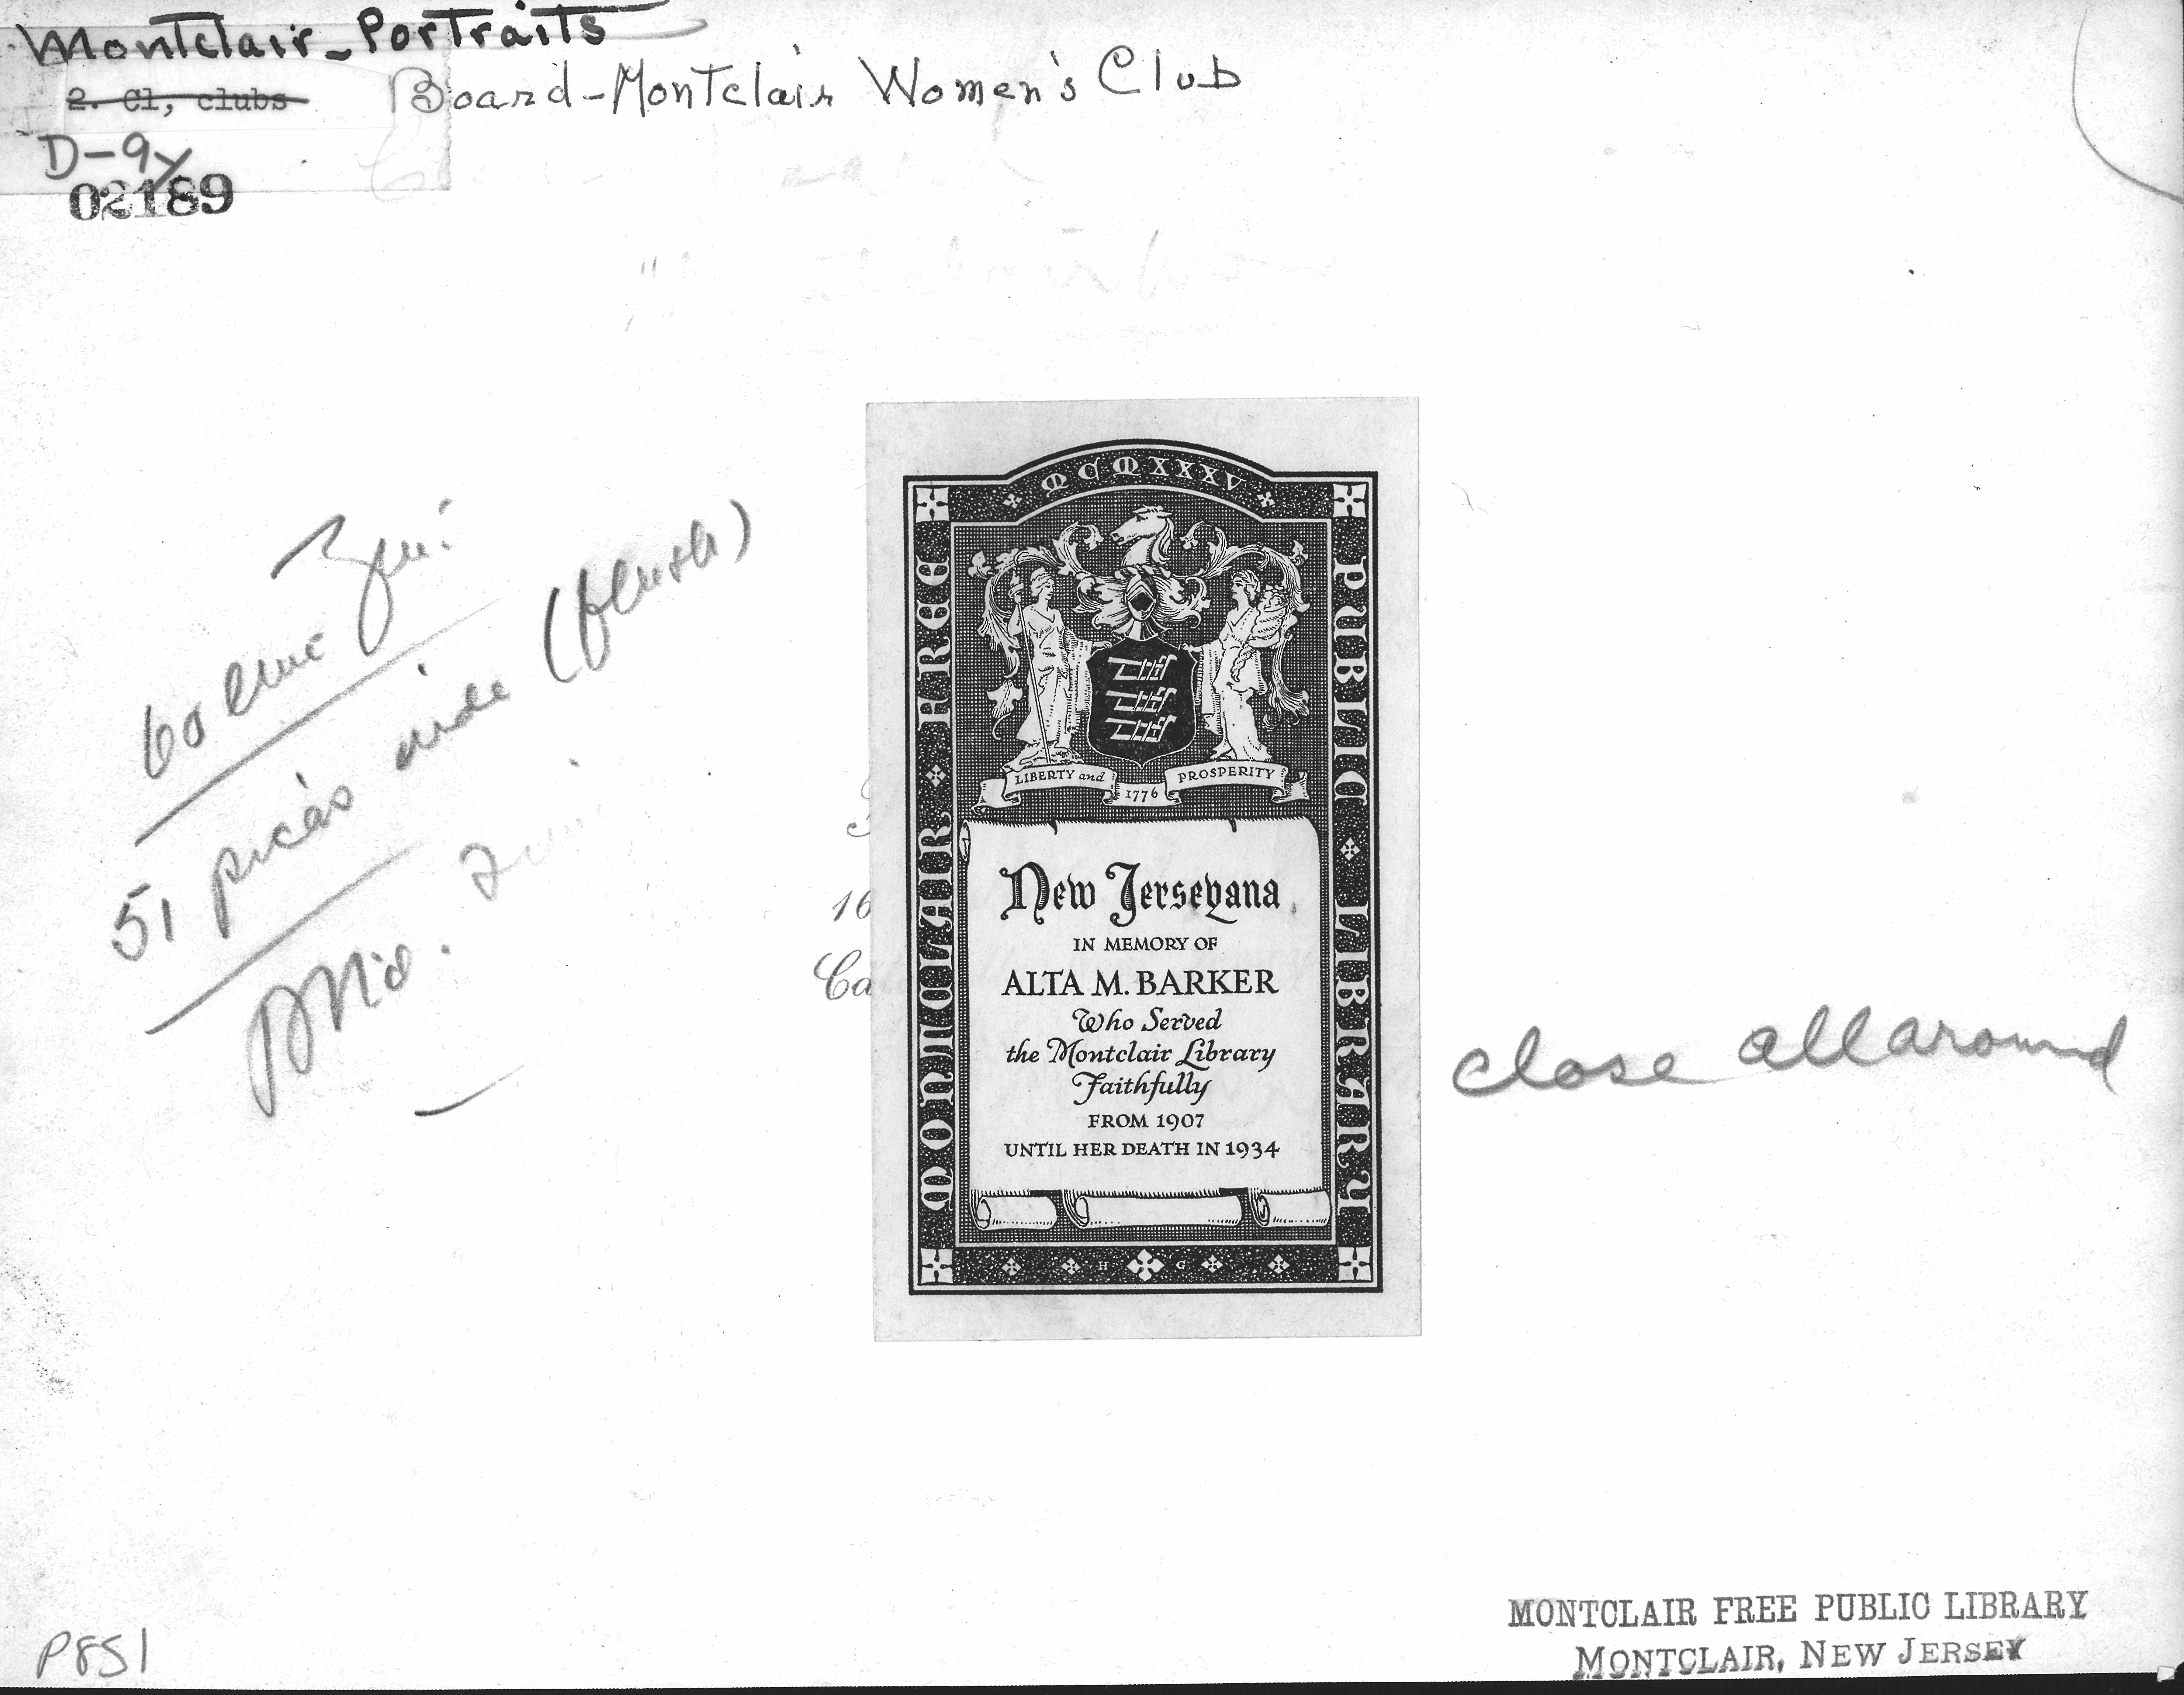 Montclair-Portraits
2. Cl, clubs
Board-Montclair Women's Club
D-9y
02189
60 line Zinc
51 picas wide (flush)
close all around
MCMXXXV
MONTCLAIR FREE
PUBLIC LIBRARY
LIBERTY and
PROSPERITY
1776
New Jerseyana
IN MEMORY OF
ALTA M. BARKER
Who Served
the Montclair Library
Faithfully
FROM 1907
UNTIL HER DEATH IN 1934
H G
16
Ca
P851
MONTCLAIR FREE PUBLIC LIBRARY
MONTCLAIR, NEW JERSEY